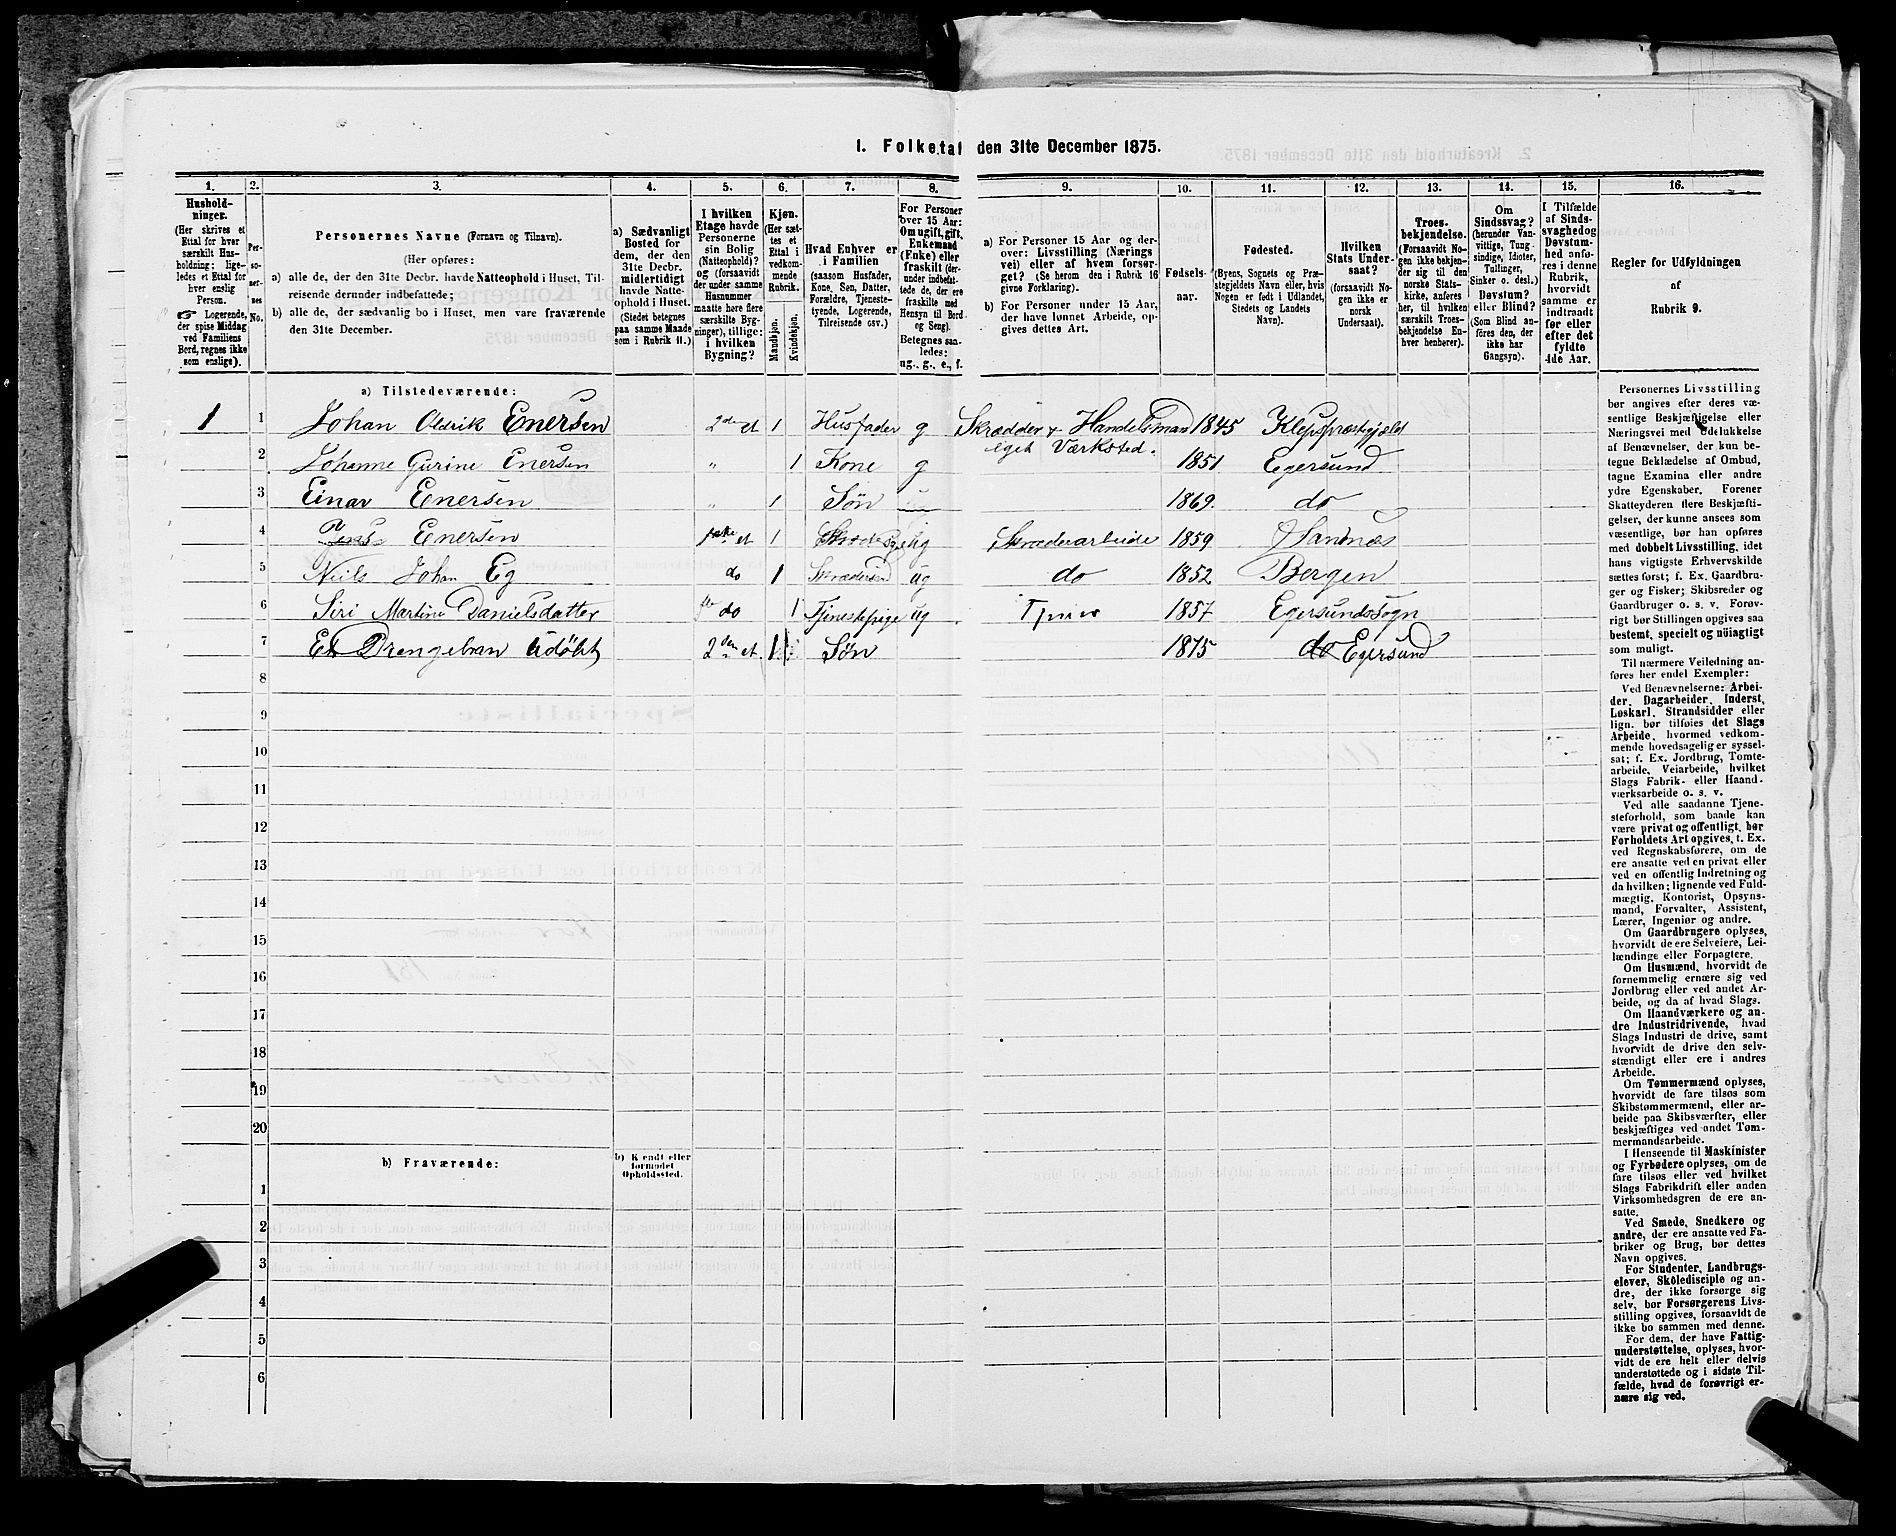 1. Folketal den 31te December 1875.
1. 2. 3. 4. 5. 6. 7. 8. 9. 10. 11. 12. 13. 14. 15. 16.
Hushold-
ninger.
(Her skrives et
Ettal for hver
særskilt Hus-
holdning; lige-
ledes et Ettal for
hver enslig
Person.
☞ Logerende,
der spise Middag
ved Familiens
Bord, regnes ikke
som enslige).
Per-
so-
ner-
nes
No.
Personernes Navne (Fornavn og Tilnavn).
(Her opføres:
a) alle de, der den 31te Decbr. havde Natteophold i Huset, Til-
reisende derunder indbefattede;
b) alle de, der sædvanlig bo i Huset, men vare fraværende
den 31te December.
a) Sædvanligt
Bosted for
dem, der den
31te Decbr.
midlertidigt
havde Natte-
ophold i Huset.
(Stedet betegnes
paa samme Maade
som i Rubrik 11.)
I hvilken
Etage havde
Personerne
sin Bolig
(Natteophold)?
og (forsaavidt
der under samme
Husnummer
maatte høre flere
særskilte Byg-
ninger), tillige:
i hvilken
Bygning?
Kjøn.
(Her sæt-
tes et
Ettal i
vedkom-
mende
Rubrik.
Mandkjøn.
Kvindekjøn.
Hvad Enhver er
i Familien
(saasom Husfader,
Kone, Søn, Datter,
Forældre, Tjeneste-
tyende, Logerende,
Tilreisende osv.)
For Personer
over 15 Aar:
Om ugift, gift,
Enkemand
(Enke) eller
fraskilt (der-
under indbefat-
tede de, der ere
fraskilte med
Hensyn til Bord
og Seng).
Betegnes saa-
ledes:
ug., g., e., f.
a) For Personer 15 Aar og der-
over: Livsstilling (Nærings
vei) eller af hvem forsør-
get? (Se herom den i Rubrik 16
givne Forklaring).
b) For Personer under 15 Aar,
der have lønnet Arbeide, op-
gives dettes Art.
Fødsels-
aar.
Fødested.
(Byens, Sognets og Præ-
stegjeldets Navn eller, hvis
Nogen er født i Udlandet,
Stedets og Landets
Navn).
Hvilken
Stats Under-
saat?
(forsaavidt No-
gen ikke er
norsk
Undersaat).
Troes-
bekjendelse.
(Forsaavidt No-
gen ikke bekjen-
der sig til den
norske Stats-
kirke, anføres
her, til hvilken
særskilt Troes-
bekjendelse En-
hver henhører).
Om
Sindssvag?
(herunder Van-
vittige, Tung-
sindige, Idioter,
Tullinger,
Sinker o. desl.)
Døvstum?
eller Blind?
(Som Blind an-
føres den, der
ikke har
Gangsyn).
I Tilfælde
af Sinds-
svaghed og
Døvstum-
hed anfø-
res i denne
Rubrik,
hvorvidt
samme er
indtraadt
før eller
efter det
fyldte
4de Aar.
Regler for Udfyldningen
af
Rubrik 9.
a) Tilstedeværende:
1 1 Johan Oldrik Enersen 2den et 1 Husfader g Skrædder & Handelsmand 1845 Klepspræstegjæld
eget Værksted.
2 Johanne Gurine Enersen " 1 Kone g 1851 Egersund
3 Einar Enersen " 1 Søn 1869. do
4 Enersen 1ste et 1 ug Skræderarbeide 1859 Sandnæs
5 Niels Johan Eg do 1 Skrædersv ug do 1852 Bergen
6 Siri Martine Danielsdatter do 1 Tjenestepige ug 1857 Egersundssogn
7 Et Drengebarn Udøbt 2den et. 1 Søn 1875 do Egersund
8
9
10
11
12
13
14
15
16
17
18
19
20
b) Fraværende:
b) Kjendt eller
formodet
Opholdssted.
1
2
3
4
5
6
Personernes Livsstilling
bør angives efter deres væ-
sentlige Beskjæftigelse eller
Næringsvei med Udelukkelse
af Benævnelser, der kun be-
tegne Beklædelse af Ombud,
tagne Examina eller andre
ydre Egenskaber. Forener
Skatteyderen flere Beskjæfti-
gelser, der kunne ansees som
væsentlige, bør han opføres
med dobbelt Livsstilling, idet
hans vigtigste Erhvervskilde
sættes først; f. Ex. Gaardbru-
ger og Fisker; Skibsreder og
Gaardbruger o. s. v. Forøv-
rigt bør Stillingen opgives saa
bestemt, specielt og nøiagtigt
som muligt.
Til nærmere Veiledning an-
føres her endel Exempler:
Ved Benævnelserne: Arbei-
der, Dagarbeider, Inderst,
Løskarl, Strandsidder eller
lign. bør tilføies det Slags
Arbeide, hvormed vedkom-
mende hovedsagelig er syssel-
sat; f. Ex. Jordbrug, Tomte-
arbeide, Veiarbeide, hvilket
Slags Fabrik- eller Haand-
værksarbeide o. s. v.
Ved alle saadanne Tjene-
steforhold, som baade kan
være privat og offentligt, bør
Forholdets Art opgives, t. Ex.
ved Regnskabsførere, om de
ere ansatte ved en privat eller
ved en offentlig Indretning og
da hvilken; lignende ved Fuld-
mægtig, Kontorist, Opsyns-
mand, Forvalter, Assistent,
Lærer, Ingeniør og andre.
Om Gaardbrugere oplyses,
hvorvidt de ere Selveiere, Lei-
lændinge eller Forpagtere.
Om Husmænd, hvorvidt de
fornemmelig ernære sig ved
Jordbrug eller ved andet Ar-
beide, og da af hvad Slags.
Om Haandværkere og an-
dre Industridrivende, hvad
Slags Industri de drive, samt
hvorvidt de drive den selv-
stændigt eller ere i andres
Arbeide.
Om Tømmermænd oplyses,
hvorvidt de fare tilsøs som
Skibstømmermænd, eller ar-
beide paa Skibsværfter, eller
beskjæftiges ved andet Tøm-
mermandsarbeide.
I Henseende til Maskinister
og Fyrbødere oplyses, om de
fare tilsøs eller ved hvilket
Slags Fabrikdrift eller anden
Virksomhedsgren de ere an-
satte.
Ved Smede, Snedkere og
andre, der ere ansatte ved Fa-
briker og Brug, bør dettes
Navn opgives.
For Studenter, Landbrugs-
elever, Skoledisciple og an-
dre, der ikke forsørge sig
selv, bør Forsørgerens Livs-
stilling opgives, forsaavidt de
ikke bo sammen med denne.
For dem, der have Fattig-
understøttelse, oplyses, hvor-
vidt de ere helt eller delvis
understøttede og i sidste Til-
fælde, hvad de forøvrigt er-
nære sig ved.